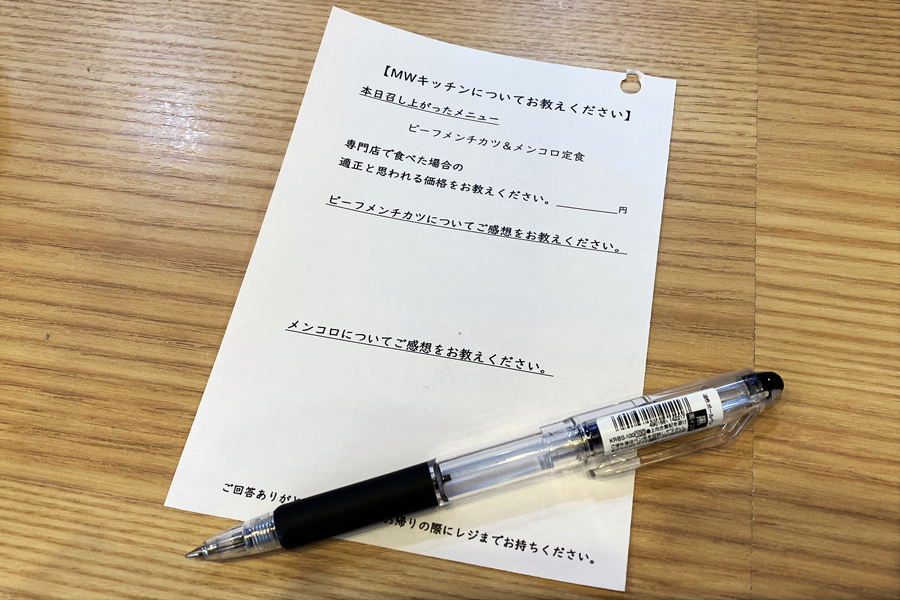 【MWキッチンについてお教えください】
本日召し上がったメニュー
ビーフメンチカツ＆メンコロ定食
専門店で食べた場合の
適正と思われる価格をお教えください。＿＿＿＿円
ビーフメンチカツについてご感想をお教えください。
メンコロについてご感想をお教えください。
ご回答ありがと
お帰りの際にレジまでお持ちください。
KRBS-100